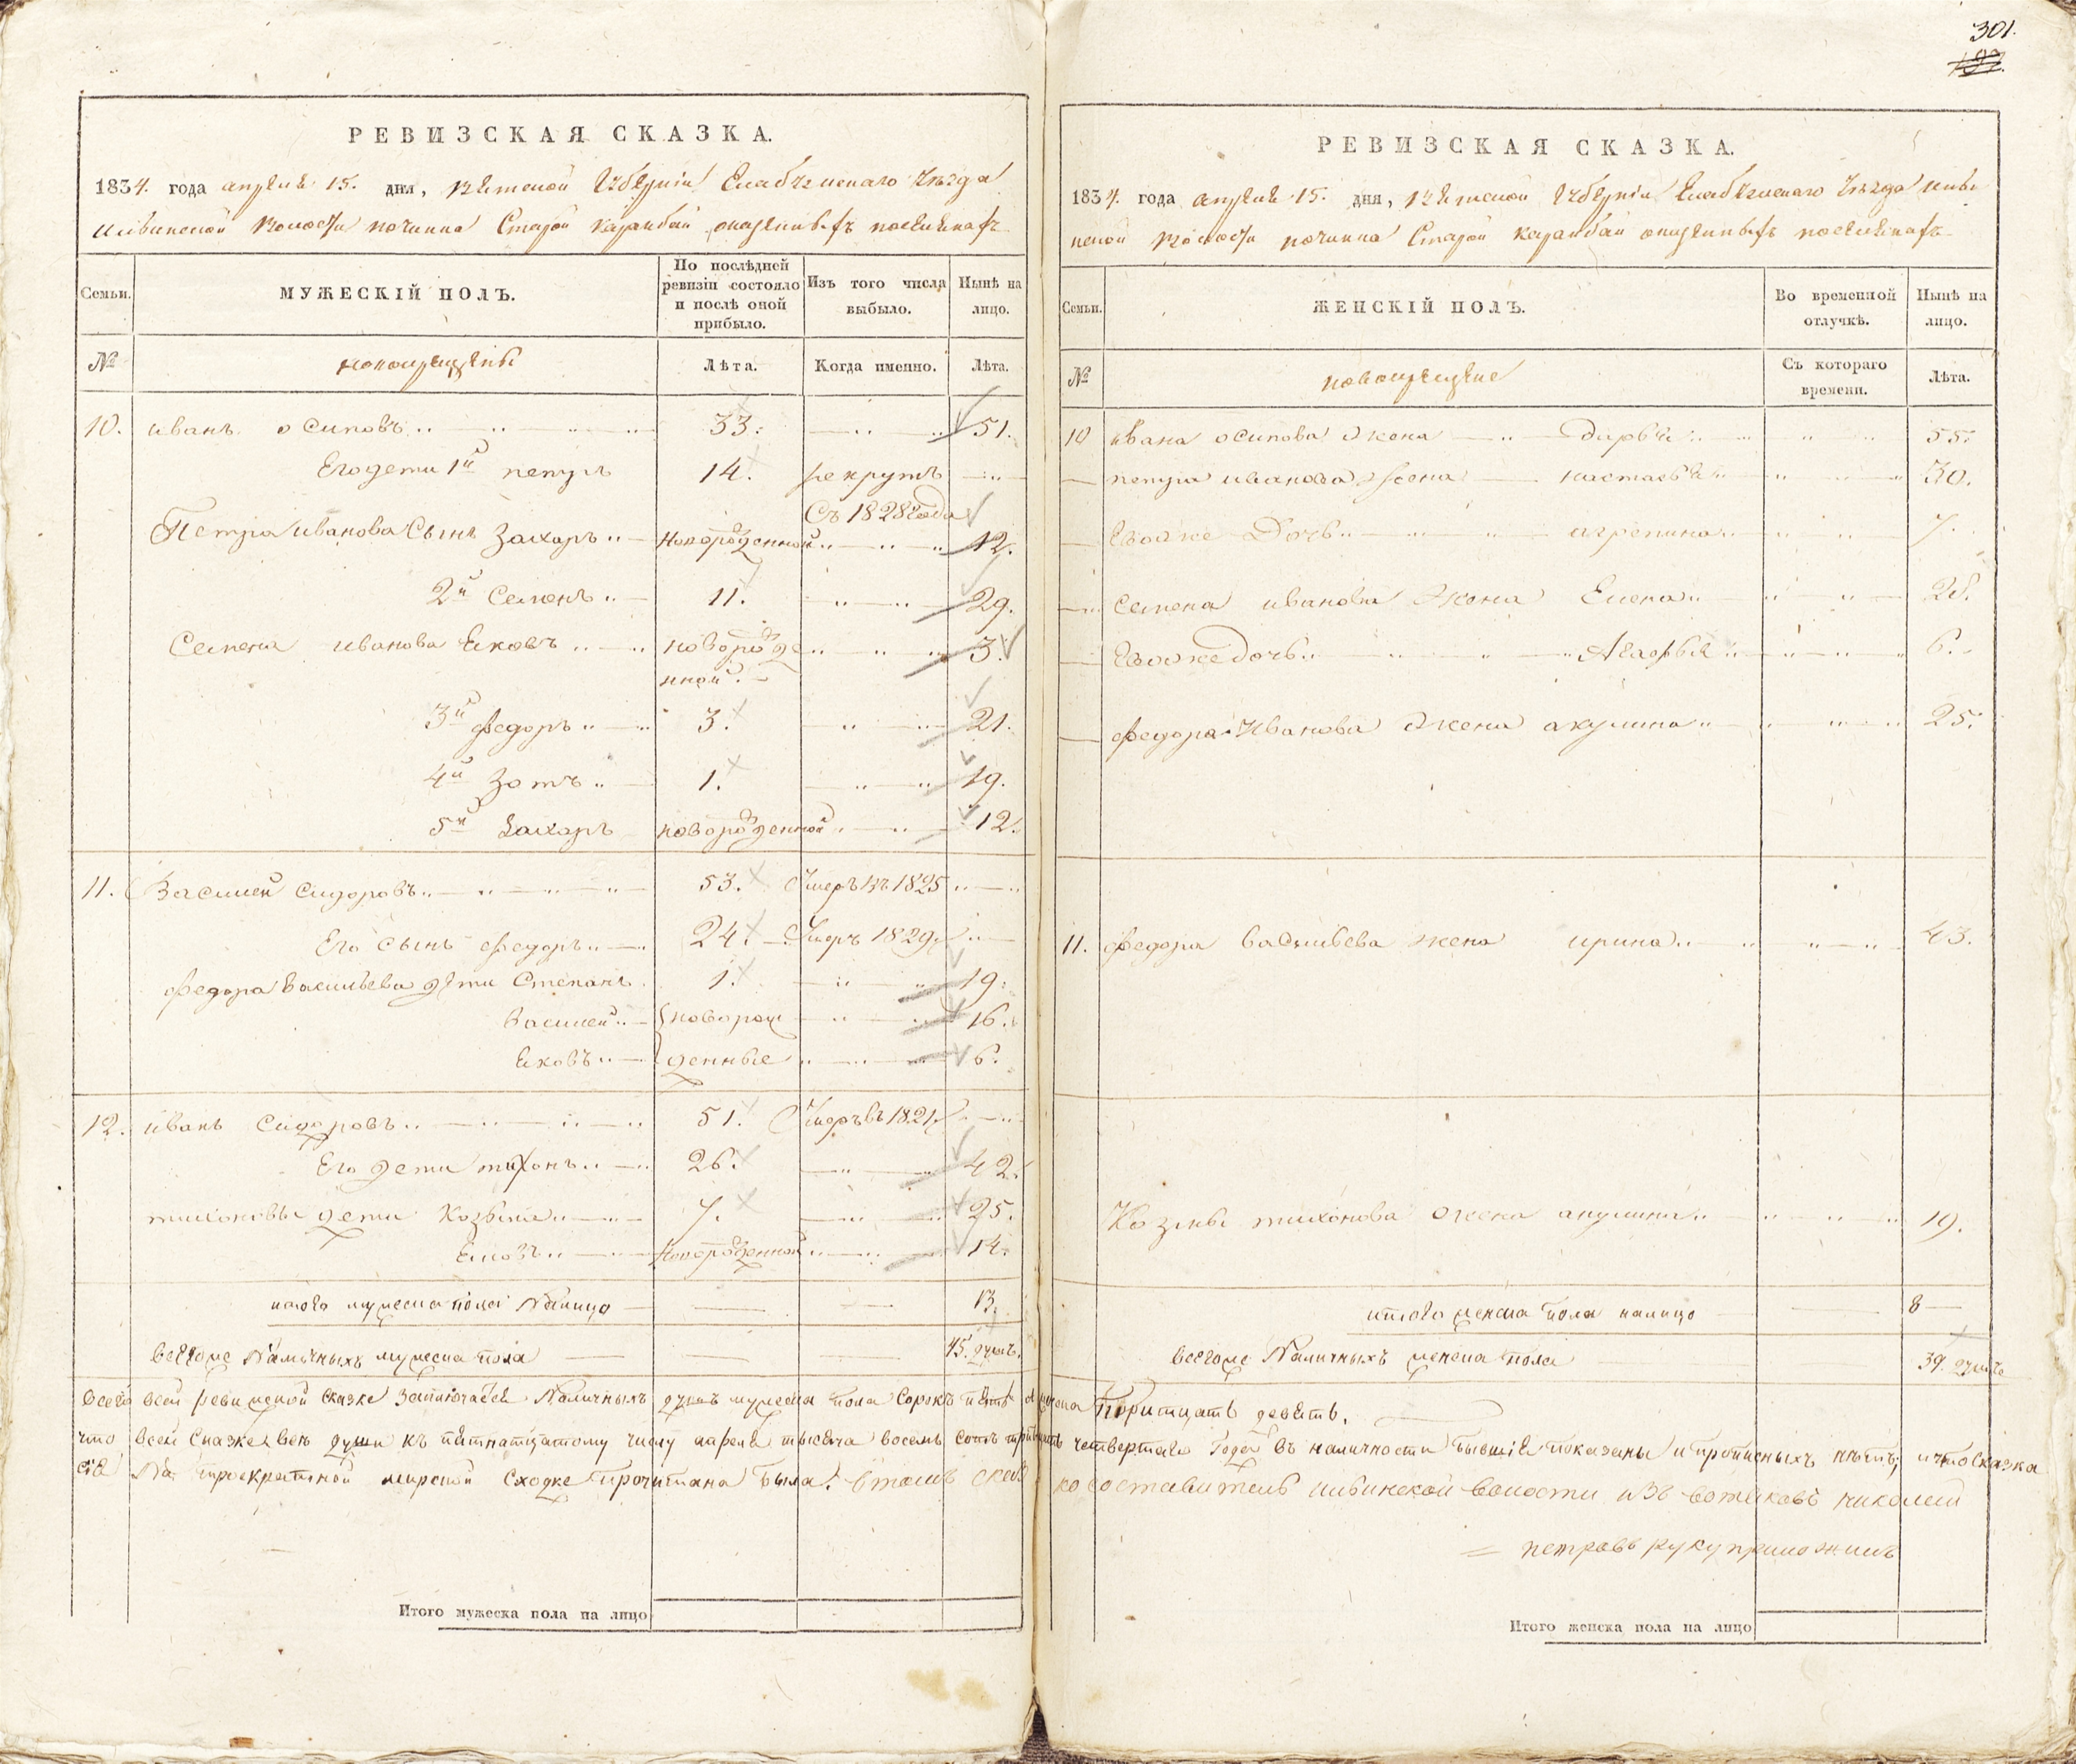 301.
РЕВИЗСКАЯ СКАЗКА.
1834. года апреля 15. дня, вятской Губернiи Елабужскаго Уѣзда
волости починка Старой
Семьи.
МУЖЕСКIЙ ПОЛЪ.
По послѣдней ревизiи состояло и послѣ оной прибыло.
Изъ того числа выбыло.
Нынѣ на лицо.
№
новокрещены
Лѣта.
Когда именно.
Лѣта.
10. иванъ осиповъ 33. 51.
Его дети 1й петръ 14. рекрутъ
Съ 1828 года
Петра иванова Сынъ Захаръ новорожденной 12.
2й Семенъ 11. 29.
Семена иванова Яковъ новорожде 3.
нной.
3й федоръ 3. 21.
4й Зотъ 1. 19.
5й Захаръ новорожденной 12.
11. Василей Сидоровъ 53. Умеръ въ 1825
Его сынъ федоръ 24. Умеръ 1829.
федора васильева дети Степанъ 1. 19.
василей новорож 16.
Яковъ денные 6.
12. иванъ Сидоровъ 51. Умеръ въ 1821.
Его дети тихонъ 26. 42.
тихоновы дети Козьма 7. 25.
Яковъ Новорожденной 14.
итого мужеска пола Налицо 13.
всегоже Наличныхъ мужеска пола 45. душъ.
РЕВИЗСКАЯ СКАЗКА.
1834. года апреля 15. дня, вятской Губернiи Елабужскаго Уѣзда
волости починка Старой
Семьи.
ЖЕНСКIЙ ПОЛЪ.
Во временной отлучкѣ.
Нынѣ на лицо.
№
новокрещеные
Съ котораго времени.
Лѣта.
10 ивана осипова жена дарья 55.
петра иванова жена настасья 30.
Евоже Дочь агрепина 7.
Семена иванова жена Елена 28.
Евоже дочь 6.
федора Иванова жена акулина 25.
11. федора васильева жена ирина 43.
Козмы тихонова жена акулина 19.
итого женска пола налицо 8
всегоже Наличныхъ женска пола 39. душъ
всего всей ревижской сказке Заключается Наличныхъ душъ мужеска пола Сорокъ пять а женска Тритцать девять.
что всей Сказке все души къ пятнатцатому числу апреля тысяча восемь сотъ тритцать четвертаго Года въ наличности бывшiя показаны и прописныхъ нѣтъ; и что сказка
сiя На троекратной мирской Сходке прочитана была. в томъ сказ ко составитель волости изъ вотяковъ николай
петровъ руку приложилъ
Итого мужеска пола на лицо
Итого женска пола на лицо